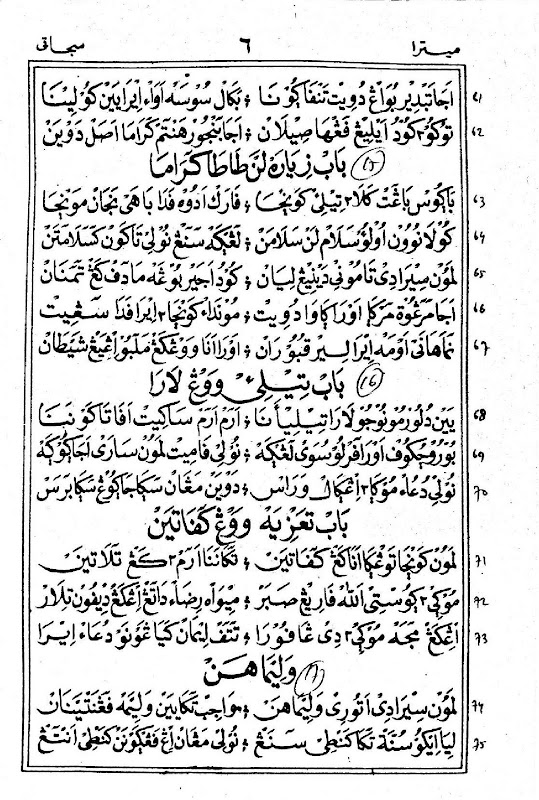 ميترا ٦ سجاتى
٦١ اجا تبذير بواڠ دويت تنڤا ڮونا ؛ بكال سوسه اواء ايرا يين كولينا
٦٢ توكو٢ كود ايليڠ ڤڠهاصيلان ؛ اجا بنجور هنتم كراما اصل دوين
(١٥) باب زيارة لن طاطا كراما
٦٣ باڮوس باڠت كلا٢ تيلى كونچا ؛ فارك ادوه فدا باهى بجان مونچا
٦٤ كولا نوون اولوء سلام لن سلامن ؛ لڠڮه سنڠ نولى تاكون كسلامتن
٦٥ لمون سيرا دى تامونى دينيڠ ليان ؛ كود اجير بوڠه مادف كڠ تمنان
٦٦ اجا مرڠوة مركا اورا ڮاوا دويت ؛ مونداء كونچا٢ ايرا فدا سڠيت
٦٧ نماهانى اومه ايرا لير قبوران ؛ اورا انا ووڠكڠ ملبو اڠيڠ شيطان
(١٦) باب تيلى ووڠ لارا
٦٨ يين دلور مو نوجو لارا تيليأنا ؛ ارم ارم ساكيت افا تاكونـنا
٦٩ بوروچكوف اورا فرلو سوى لڠڮه ؛ نولى فاميت لمون سارى اجا كوكه
٧٠ نولى دعاء موڮا٢ اڠڮال وراس ؛ دوين مڠان سكاجاڮوڠ سكا برس
باب تعزيه ووڠ كفاتين
٧١ لمون كونچا توڠڮا انا كڠ كفاتين ؛ تكاننا ارم٢ كڠ تلاتين
٧٢ موڮى٢ ڮوستى الله فاريڠ صبر ؛ ميواه رضاء داتڠ اڠكڠ ديفون تلار
٧٣ اڠكڠ مجه موڮى٢ دى ڠافورا ؛ تتف ايمان كياڠونو دعاء ايرا
(١٧) وليماهن
٧٤ لمون سيرا دى اتورى وليماهن ؛ واجب تكا يين وليمه فڠنتينان
٧٥ ليا ايكو سنة تكا كنطى سنڠ ؛ نولى مڠان اڠ فڠڮونن كنطى انتڠ